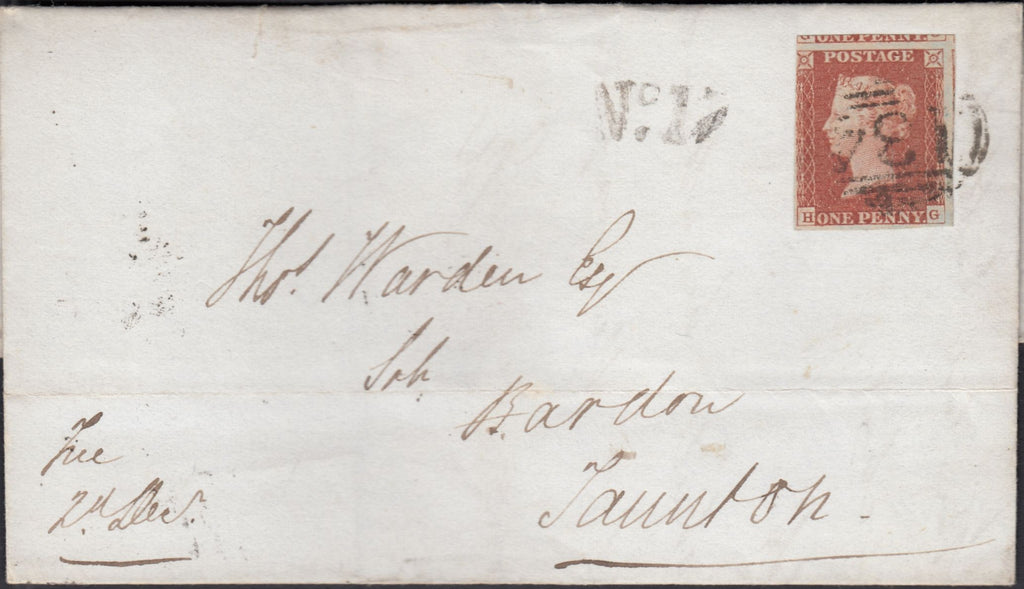 ONE PENNY.
POSTAGE
No. 17
H ONE PENNY. G
Thos. Warden Esq
Bardon
Taunton
2d. Decr.